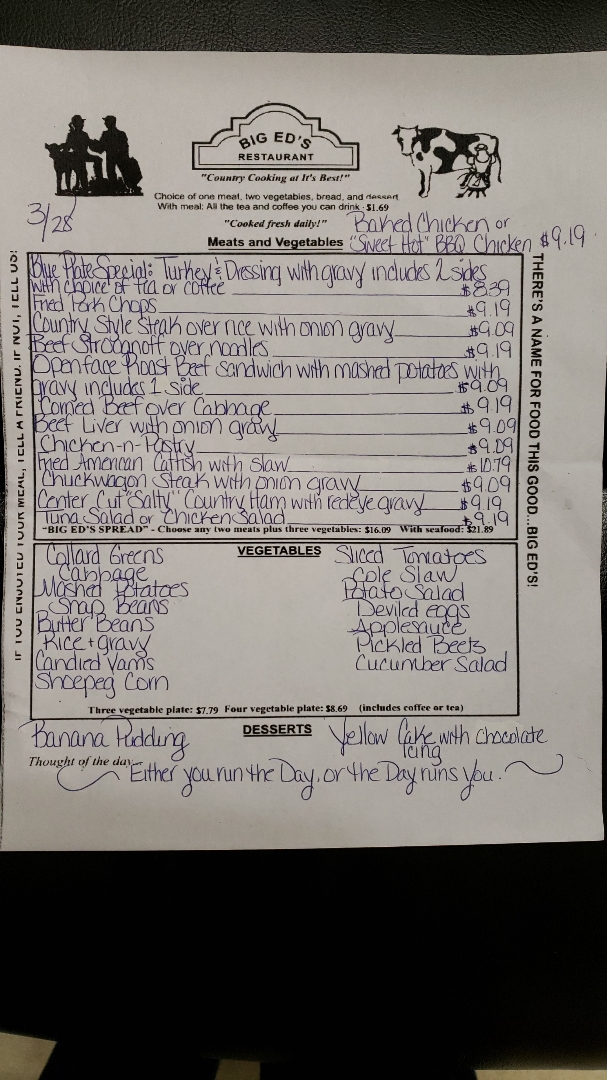 BIG ED'S
RESTAURANT
"Country Cooking at It's Best!"
Choice of one meat, two vegetables, bread, and dessert
With meal: All the tea and coffee you can drink - $1.69
3/28
"Cooked fresh daily!"
Baked Chicken or
Meats and Vegetables "Sweet Hot" BBQ Chicken $9.19
Blue Plate Special: Turkey & Dressing with gravy includes 2 sides
with choice of tea or coffee $8.39
Fried Pork Chops $9.19
Country Style Steak over rice with onion gravy $9.09
Beef Stroganoff over noodles $9.19
Openface Roast Beef Sandwich with mashed potatoes with
gravy includes 1 side $9.09
Corned Beef over Cabbage $9.19
Beef Liver with onion gravy $9.09
Chicken-n-Pastry $9.09
Fried American Catfish with slaw $10.79
Chuckwagon Steak with onion gravy $9.09
Center Cut "Salty" Country Ham with redeye gravy $9.19
Tuna Salad or Chicken Salad $9.19
"BIG ED'S SPREAD" - Choose any two meats plus three vegetables: $16.09 With seafood: $21.89
IF YOU ENJOYED YOUR MEAL, TELL A FRIEND. IF NOT, TELL US!
THERE'S A NAME FOR FOOD THIS GOOD...BIG ED'S!
VEGETABLES
Collard Greens
Cabbage
Mashed Potatoes
Snap Beans
Butter Beans
Rice + gravy
Candied Yams
Shoepeg Corn
Sliced Tomatoes
Cole Slaw
Potato Salad
Deviled eggs
Applesauce
Pickled Beets
Cucumber Salad
Three vegetable plate: $7.79 Four vegetable plate: $8.69 (includes coffee or tea)
DESSERTS
Banana Pudding
Yellow Cake with chocolate
Icing
Thought of the day...
Either you run the Day, or the Day runs you.